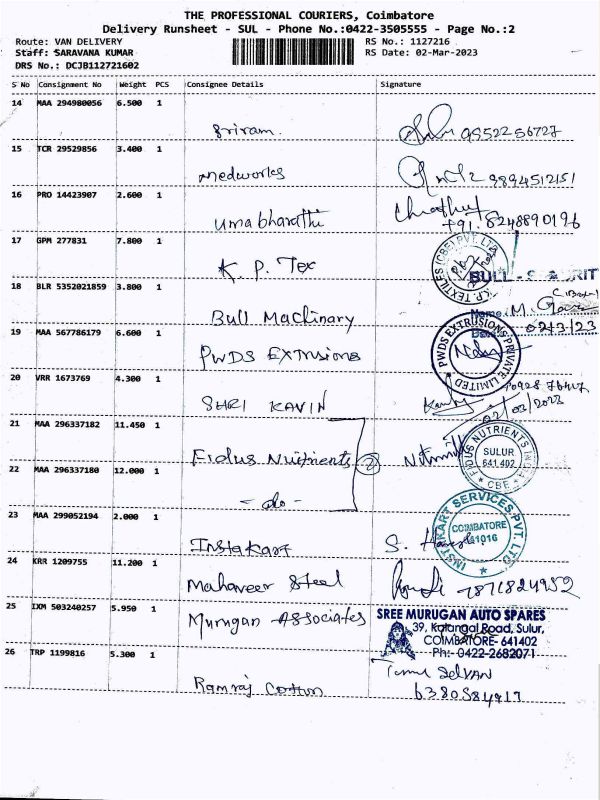 THE PROFESSIONAL COURIERS, Coimbatore
Delivery Runsheet - SUL - Phone No.:0422-3505555 - Page No.:2
Route: VAN DELIVERY RS No.: 1127216
Staff: SARAVANA KUMAR RS Date: 02-Mar-2023
DRS No.: DCJB112721602
S No Consignment No Weight PCS Consignee Details Signature
14 MAA 294980056 6.500 1
Sriram 9552256727
15 TCR 29529856 3.400 1
Medworks 9894512151
16 PRO 14423907 2.600 1
Uma bharathi
+91. 8248890196
17 GPM 277831 7.800 1
K. P. Tex
K.P. TEXTILES (CBE) PVT. LTD
BULL
18 BLR 5352021859 3.800 1
Bull Machinary
Name: M.
02/3/23
19 MAA 567786179 6.600 1
PWDS Extrusions
PWDS EXTRUSIONS PRIVATE LIMITED
20 VRR 1673769 4.300 1
SHRI KAVIN
02/03/2023
21 MAA 296337182 11.450 1
Fidus Nutrients 2
FIDUS NUTRIENTS
SULUR
641 402
CBE
22 MAA 296337180 12.000 1
- do -
23 MAA 299052194 2.000 1
Instakart S.
INSTAKART SERVICES PVT. LTD
COIMBATORE
641016
24 KRR 1209755 11.200 1
Mahaveer Steel 7871824952
25 IXM 503240257 5.950 1
Murugan Associates
SREE MURUGAN AUTO SPARES
39, Kalangal Road, Sulur,
COIMBATORE- 641402
Ph:- 0422-2682071
26 TRP 1199816 5.300 1
Ramraj Cotton
6380584917